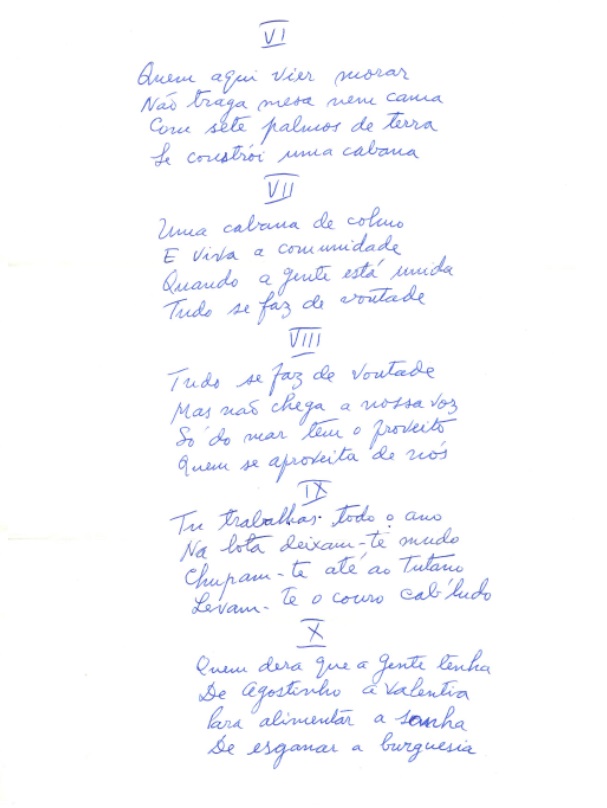 VI
Quem aqui vier morar
Não traga mesa nem cama
Com sete palmos de terra
Se constrói uma cabana
VII
Uma cabana de colmo
E viva a comunidade
Quando a gente está unida
Tudo se faz de vontade
VIII
Tudo se faz de vontade
Mas não chega a nossa voz
Só do mar tem o proveito
Quem se aproveita de nós
IX
Tu trabalhas todo o ano
Na lota deixam-te mudo
Chupam-te até ao Tutano
Levam-te o couro cab'ludo
X
Quem dera que a gente tenha
De Agostinho a Valentia
Para alimentar a sanha
De esganar a burguesia